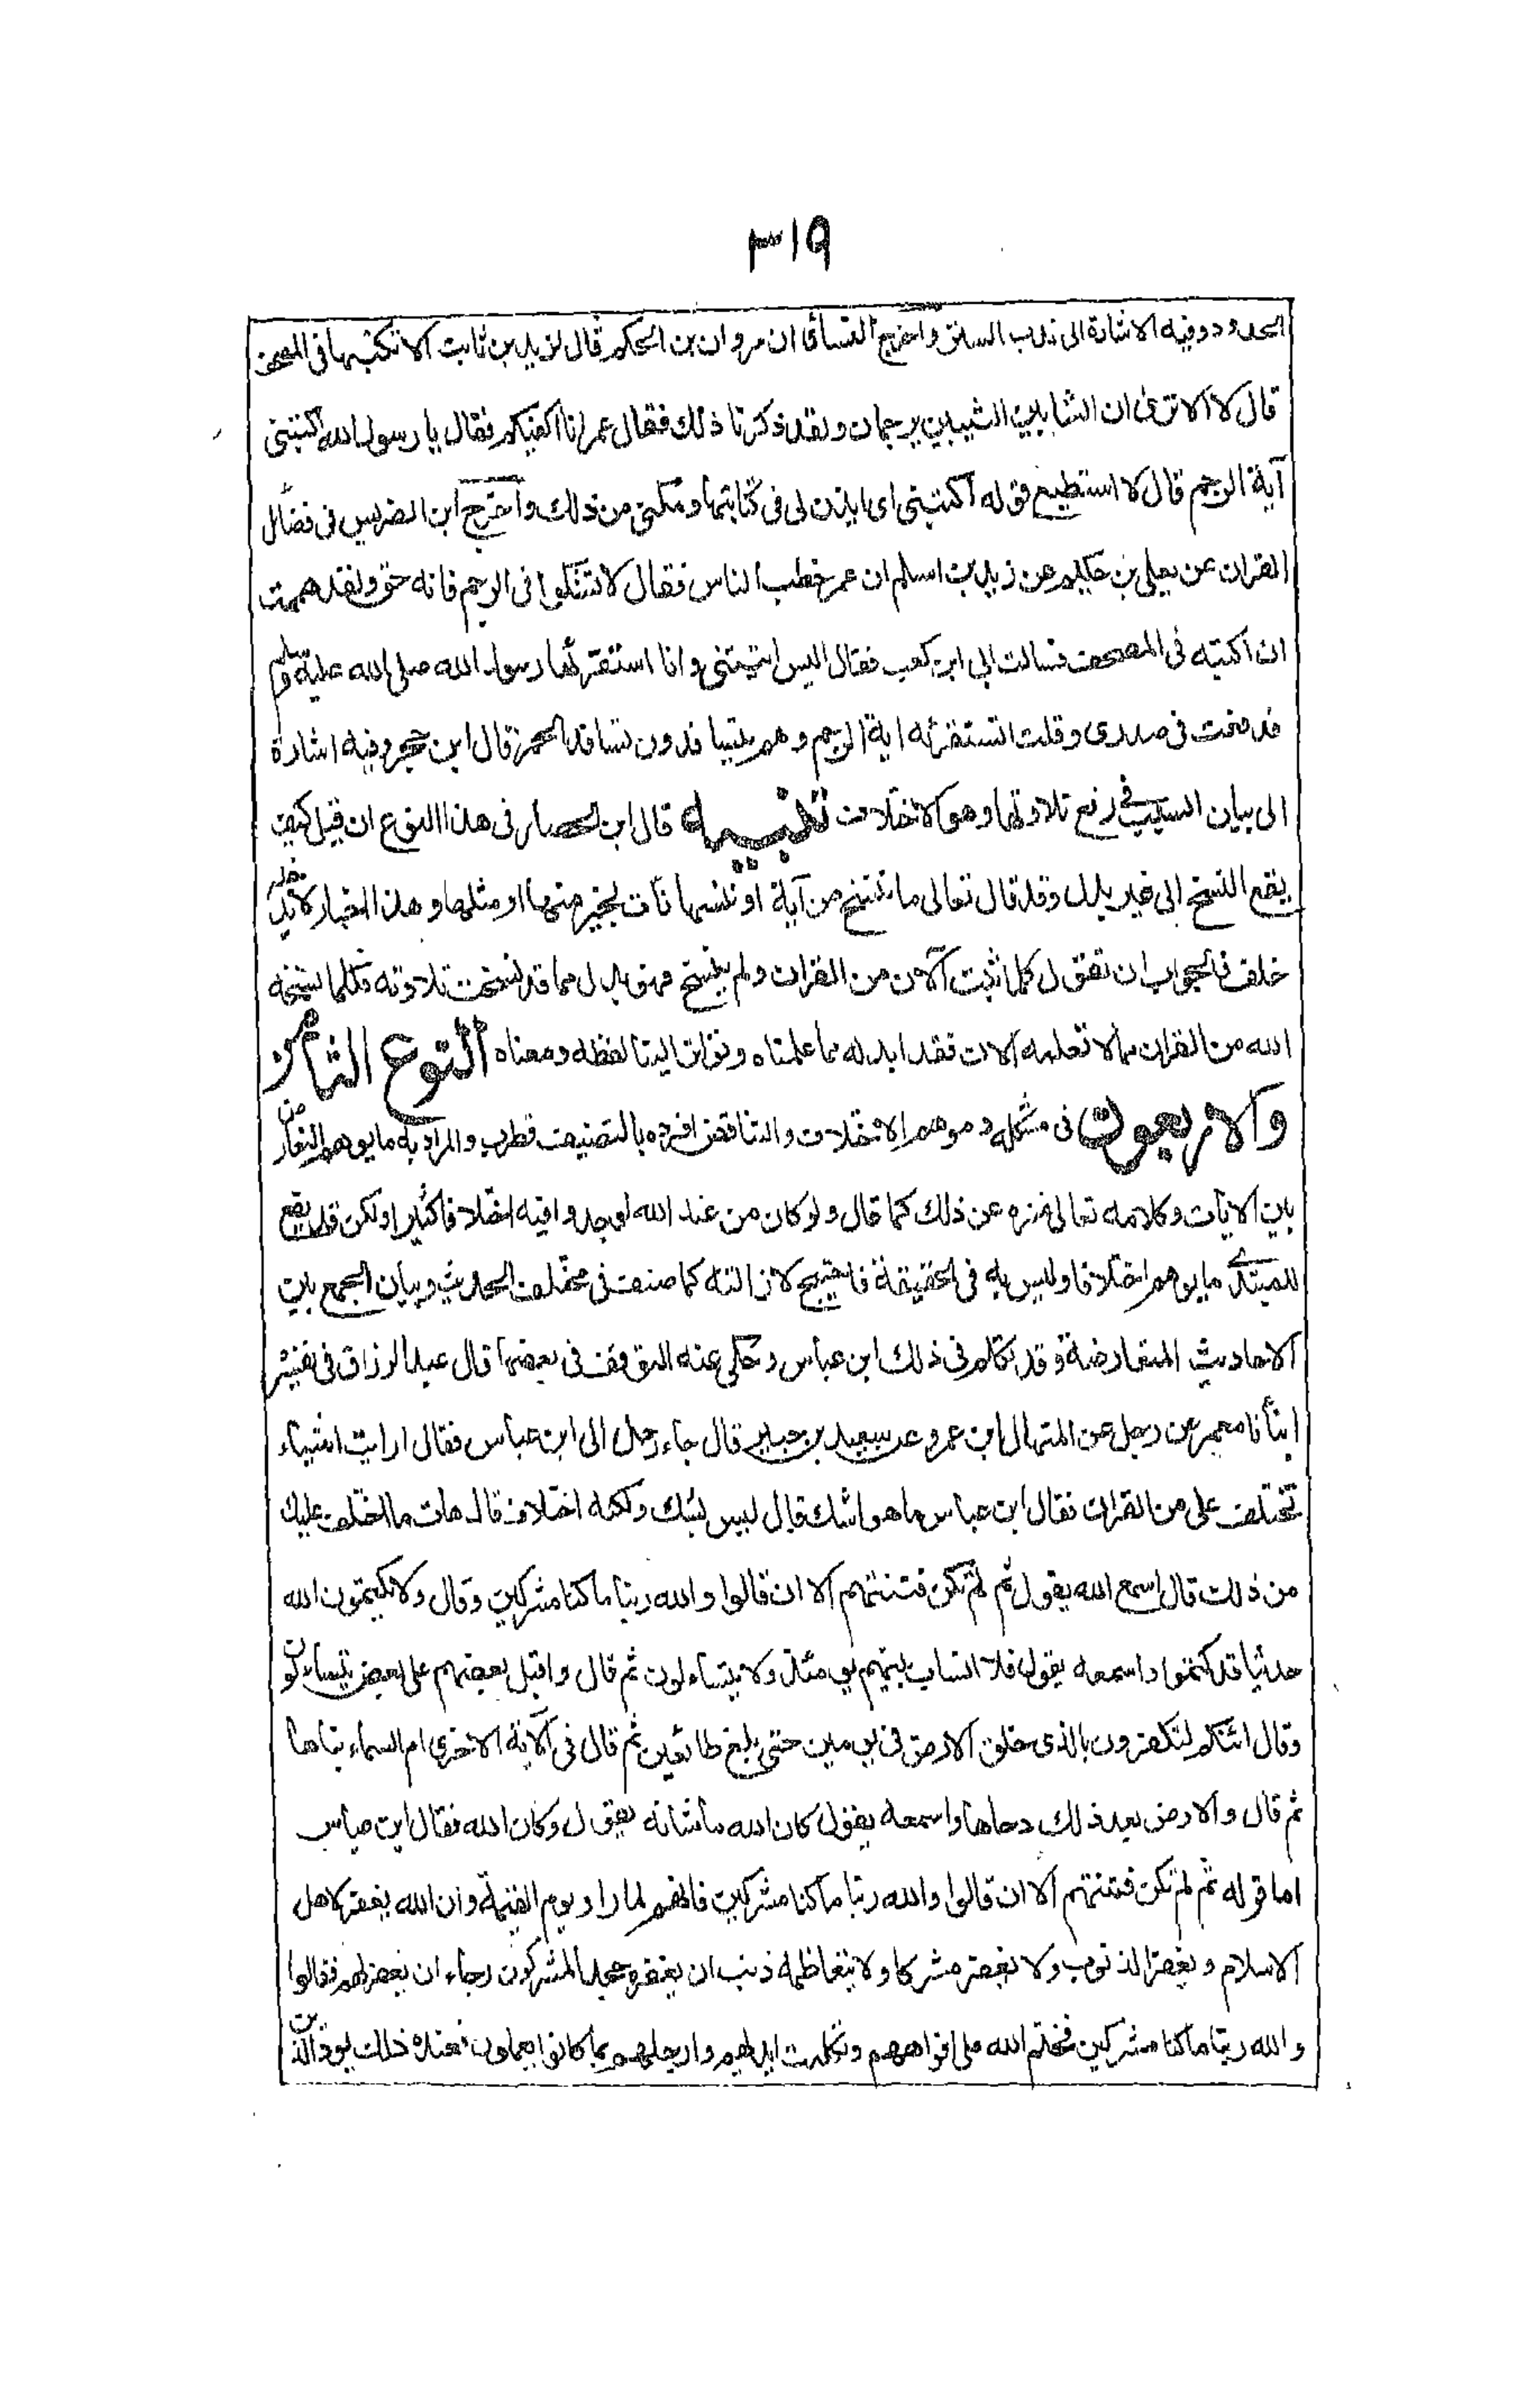 ٣١٩
الحدود وفيه الاشارة الى ندب الستر واخرج النسائى ان مروان بن الحكم قال لزيد بن ثابت الا تكتبها فى المصحف
قال لا الا ترى ان الشابين الثيبين يرجمان ولقد ذكرنا ذلك فقال عمر انا اكفيكم فقال يا رسول الله اكتبنى
آية الرجم قال لا استطيع قوله اكتبنى اى ايذن لى فى كتابتها ومكنى من ذلك واخرج ابن الضريس فى فضائل
القران عن يعلى بن حكيم عن زيد بن اسلم ان عمر خطب الناس فقال لا تشكوا فى الرجم فانه حق ولقد هممت
ان اكتبه فى المصحف فسالت ابى ابن كعب فقال اليس اتيتنى وانا استقرئها رسول الله صلى الله عليه وسلم
فدفعت فى صدرى وقلت اتستقرئه اية الرجم وهم يتسافدون تسافد الحمر قال ابن حجر وفيه اشارة
الى بيان السبب فى رفع تلاوتها وهو الاختلاف تنبيه قال ابن الحصار فى هذا النوع ان قيل كيف
يقع النسخ الى غير بدل وقد قال تعالى ما ننسخ من آية او ننسها نأت بخير منها او مثلها وهذا اخبار لا يدخله
خلف فالجواب ان تقول كلما ثبت الآن من القران ولم ينسخ فهو بدل مما قد نسخت تلاوته فكلما نسخه
الله من القران مما لا نعلمه الان فقد ابدله مما علمناه وتواتر الينا لفظه ومعناه النوع الثامن
والاربعون فى مشكله وموهم الاختلاف والتناقض افرده بالتصنيف قطرب والمراد به ما يوهم التعارض
بين الايات وكلامه تعالى منزه عن ذلك كما قال ولو كان من عند الله لوجدوا فيه اختلافا كثيرا ولكن قد يقع
للمبتدى ما يوهم اختلافا وليس به فى الحقيقة فاحتيج لازالته كما صنف فى مختلف الحديث وبيان الجمع بين
الاحاديث المتعارضة وقد تكلم فى ذلك ابن عباس وحكى عنه التوقف فى بعضها قال عبد الرزاق فى تفسيره
انبأنا معمر عن رجل عن المنهال ابن عمرو عن سعيد بن جبير قال جاء رجل الى ابن عباس فقال ارايت اشياء
تختلف على من القران فقال ابن عباس ما هو اشك قال ليس بشك ولكنه اختلاف قال هات ما اختلف عليك
من ذلك قال اسمع الله يقول ثم لم تكن فتنتهم الا ان قالوا والله ربنا ما كنا مشركين وقال ولا يكتمون الله
حديثا فقد كتموا واسمعه يقول فلا انساب بينهم يومئذ ولا يتساءلون ثم قال واقبل بعضهم على بعض يتساءلون
وقال ائنكم لتكفرون بالذى خلق الارض فى يومين حتى بلغ طائعين ثم قال فى الآية الاخرى ام السماء بناها
ثم قال والارض بعد ذلك دحاها واسمعه يقول كان الله ما شانه يقول وكان الله فقال ابن عباس
اما قوله ثم لم تكن فتنتهم الا ان قالوا والله ربنا ما كنا مشركين فانهم لما راو يوم القيمة وان الله يغفر لاهل
الاسلام ويغفر الذنوب ولا يغفر مشركا ولا يتعاظمه ذنب ان يغفره جحد المشركون رجاء ان يغفر لهم فقالوا
والله ربنا ما كنا مشركين فختم الله على افواههم وتكلمت ايديهم وارجلهم بما كانوا يعملون فعند ذلك يود الذين